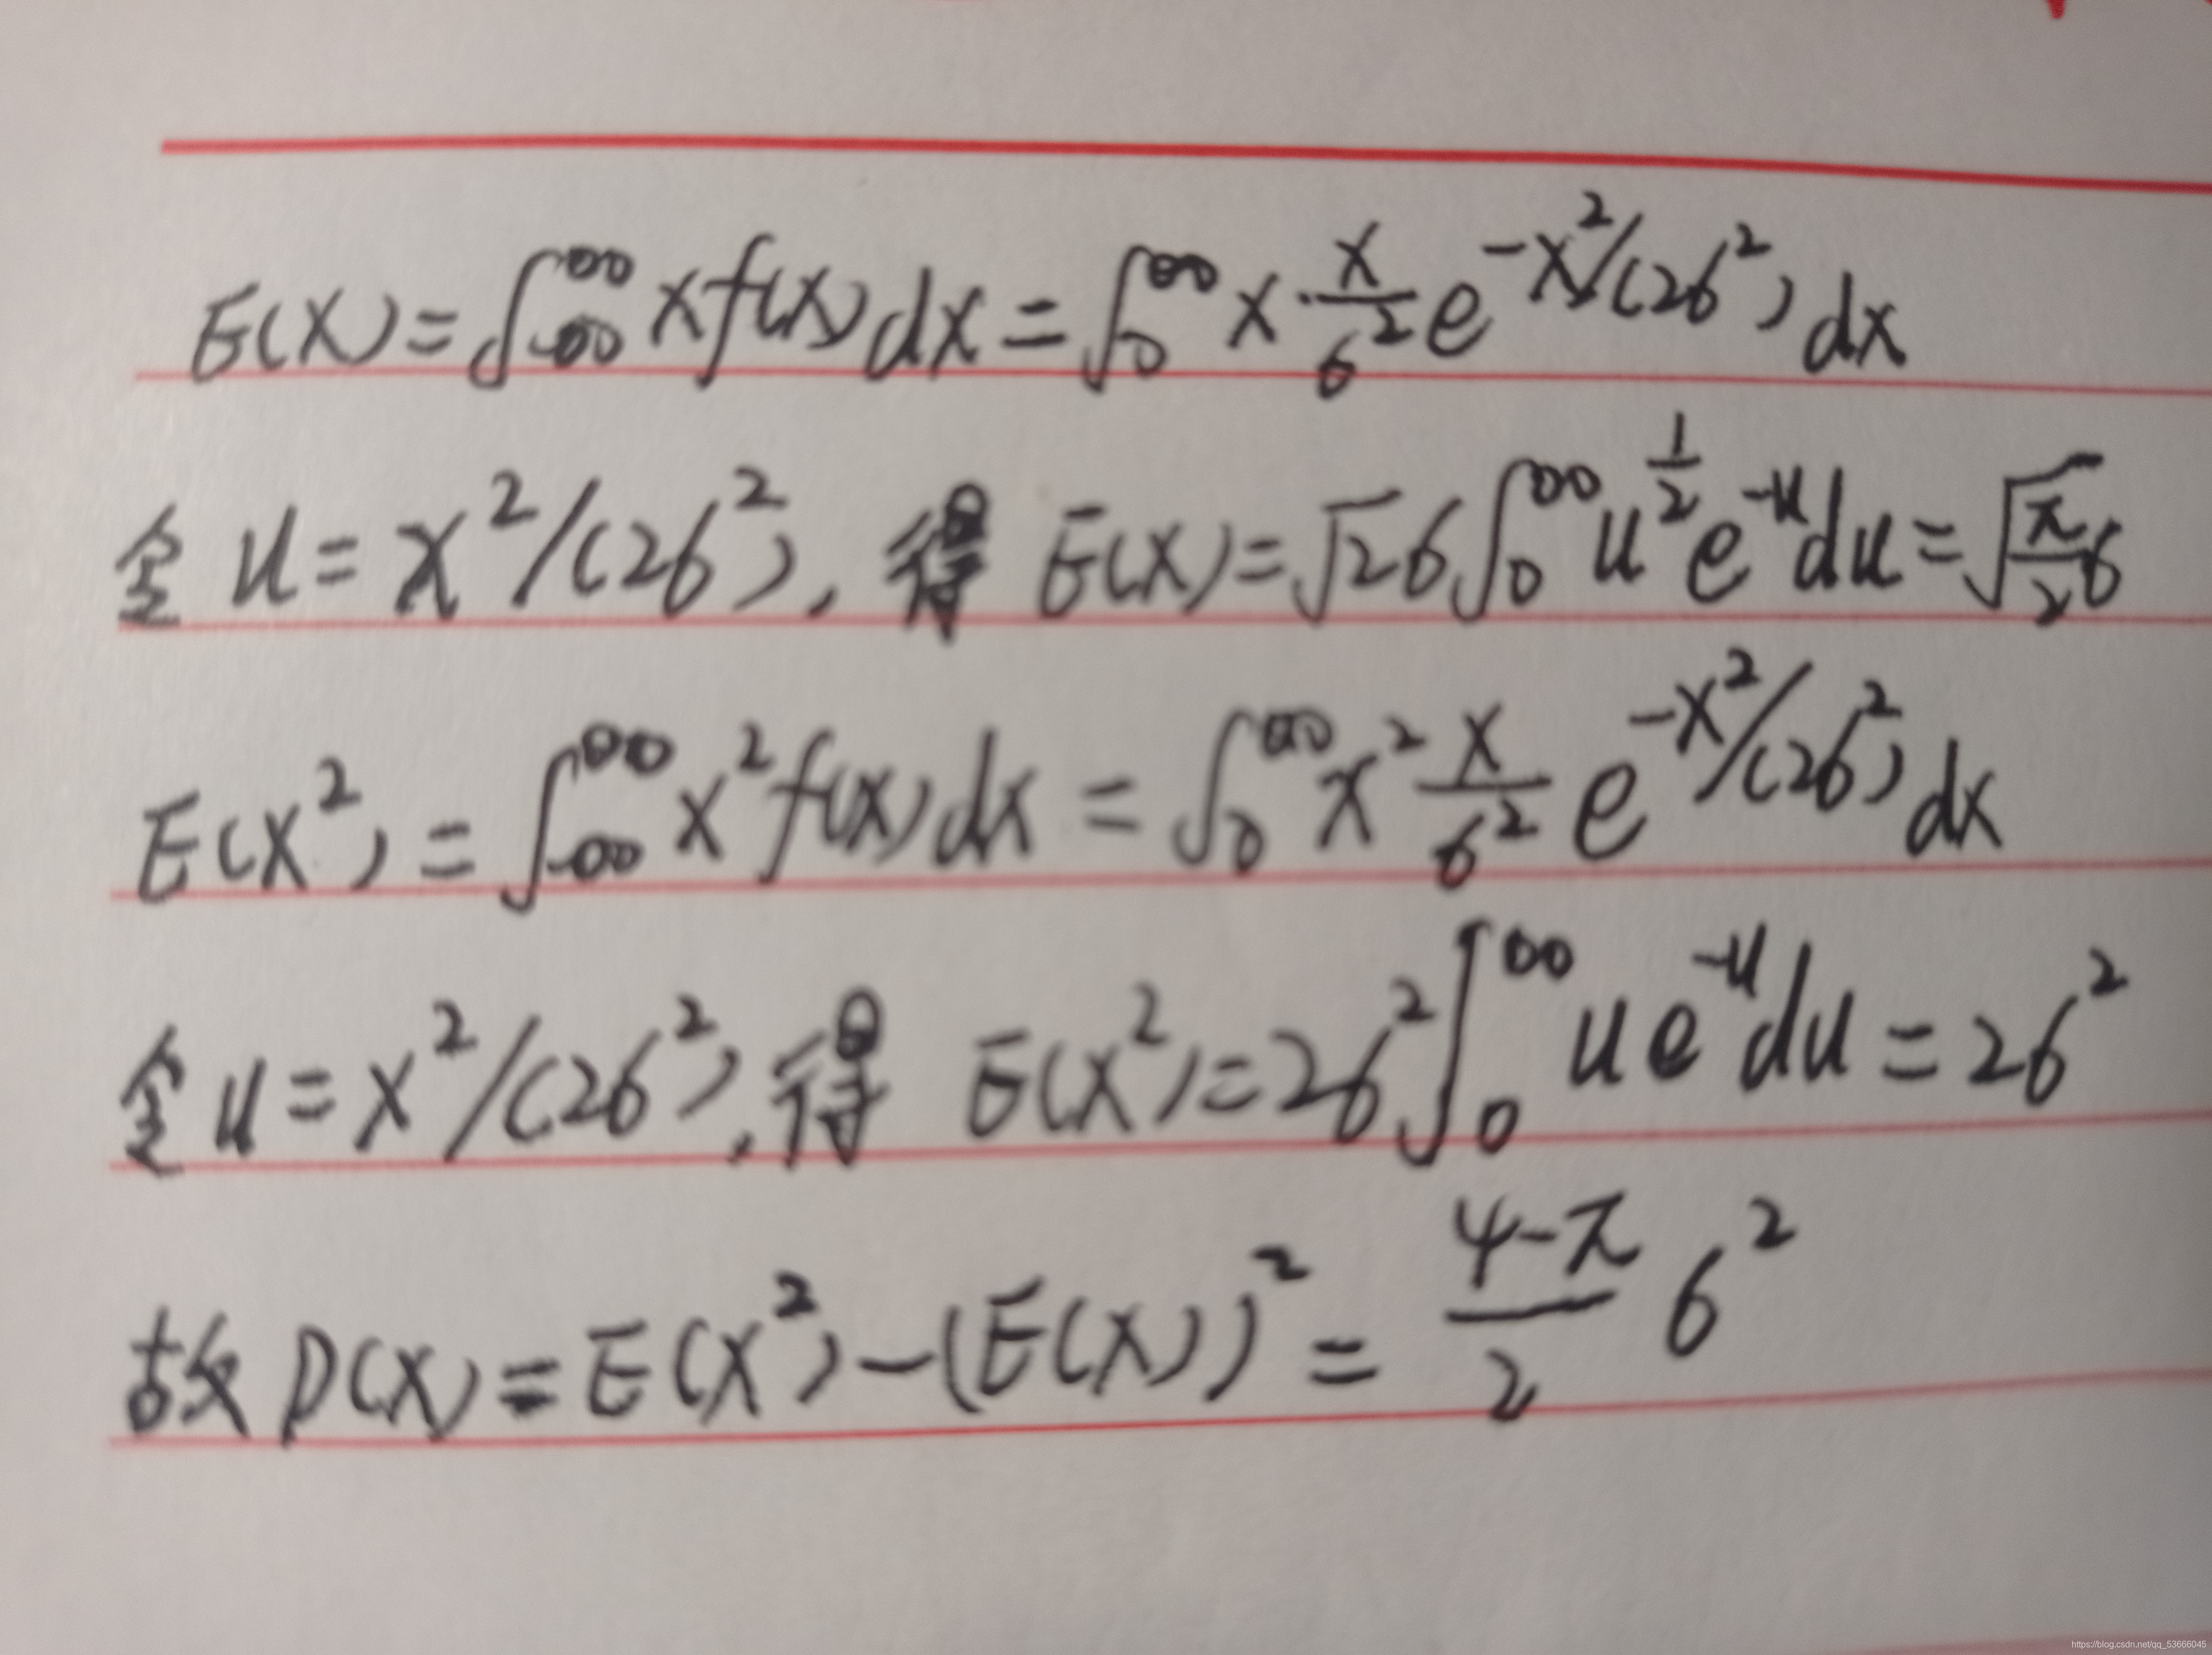 E(X) = ∫_{-∞}^{∞} x f(x) dx = ∫_0^∞ x · \frac{x}{σ^2} e^{-x^2/(2σ^2)} dx
令 u = x^2/(2σ^2), 得 E(X) = √2 σ ∫_0^∞ u^{\frac{1}{2}} e^{-u} du = \sqrt{\frac{π}{2}} σ
E(X^2) = ∫_{-∞}^{∞} x^2 f(x) dx = ∫_0^∞ x^2 \frac{x}{σ^2} e^{-x^2/(2σ^2)} dx
令 u = x^2/(2σ^2), 得 E(X^2) = 2σ^2 ∫_0^∞ u e^{-u} du = 2σ^2
故 D(X) = E(X^2) - (E(X))^2 = \frac{4-π}{2} σ^2
https://blog.csdn.net/qq_53666045